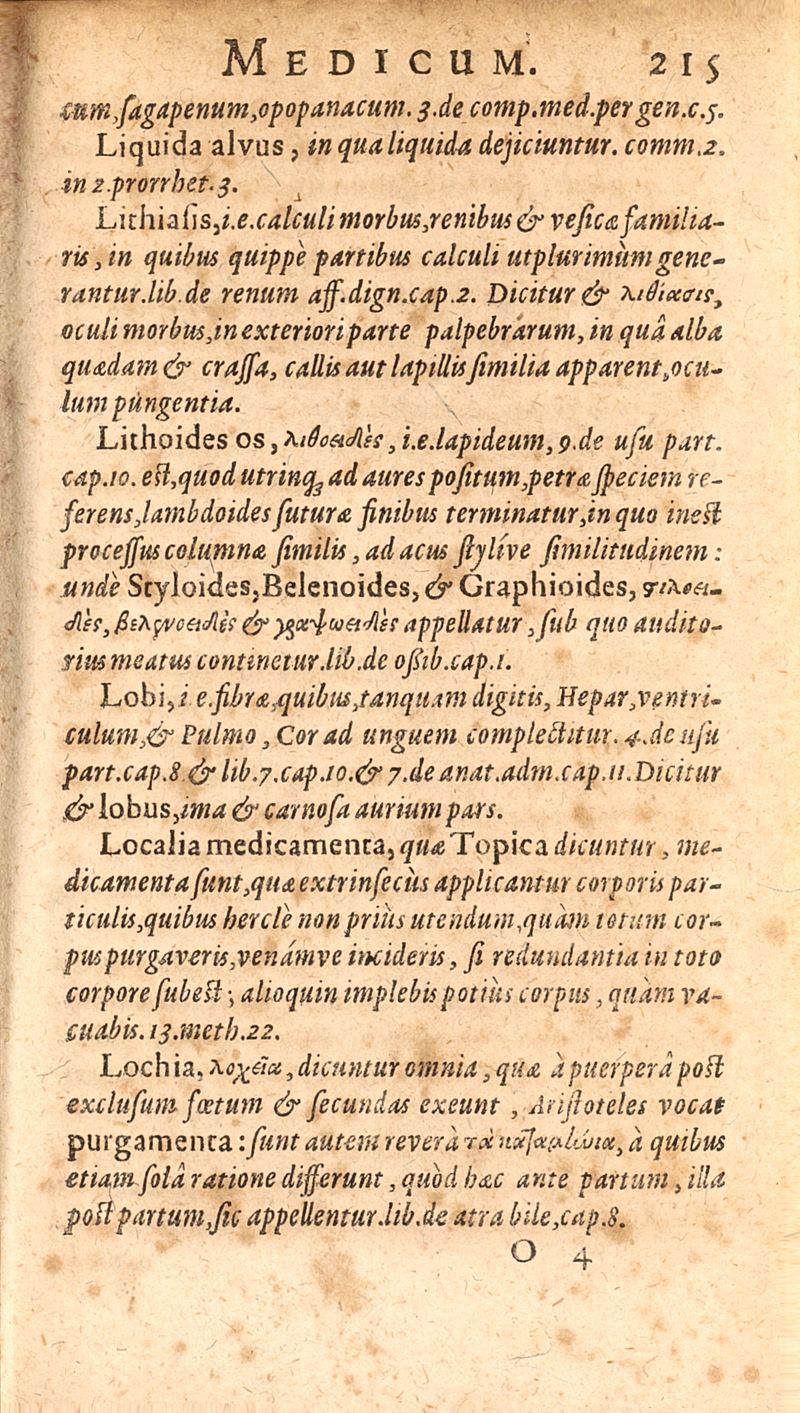 MEDICUM. 215
cum,ſagapenum,opopanacum. 3.de comp.med.per gen.c.5.
Liquida alvus, in qua liquida dejiciuntur. comm.2.
in 2.prorrhet.3.
Lithiaſis,i.e.calculi morbus,renibus & veſicæ familia-
ris, in quibus quippè partibus calculi utplurimùm gene-
rantur.lib.de renum aff.dign.cap.2. Dicitur & λιθίασις,
oculi morbus,in exteriori parte palpebrarum, in quâ alba
quædam & craſſa, callis aut lapillis ſimilia apparent,ocu-
lum pungentia.
Lithoides os, λιθοειδὲς, i.e.lapideum, 9.de uſu part.
cap.10. eſt,quod utrinq; ad aures poſitum,petræ ſpeciem re-
ferens,lambdoides ſuturæ finibus terminatur,in quo ineſt
proceſſus columnæ ſimilis, ad acus ſtylíve ſimilitudinem:
undè Styloides,Belenoides, & Graphioides, ςιλοει-
δὲς, βελῃνοειδὲς & γραψωειδὲς appellatur, ſub quo audito-
rius meatus continetur.lib.de oſſib.cap.1.
Lobi, i e.fibræ,quibus,tanquam digitis, Hepar,ventri-
culum,& Pulmo, Cor ad unguem complectitur. 4.de uſu
part.cap.8 & lib.7.cap.10.& 7.de anat.adm.cap.11.Dicitur
& lobus,ima & carnoſa aurium pars.
Localia medicamenta, quæ Topica dicuntur, me-
dicamenta ſunt,quæ extrinſecùs applicantur corporis par-
ticulis,quibus herclè non priùs utendum,quàm totum cor-
pus purgaveris,venámve incideris, ſi redundantia in toto
corpore ſubeſt; alioquin implebis potiùs corpus, quàm va-
cuabis. 13.meth.22.
Lochia, λοχεῖα, dicuntur omnia, quæ à puerperâ poſt
excluſum fœtum & ſecundas exeunt, Ariſtoteles vocat
purgamenta: ſunt autem reverà τὰ à quibus
etiam ſolâ ratione differunt, quòd hæc ante partum, illa
poſt partum,ſic appellentur.lib.de atra bile,cap.8.
O 4